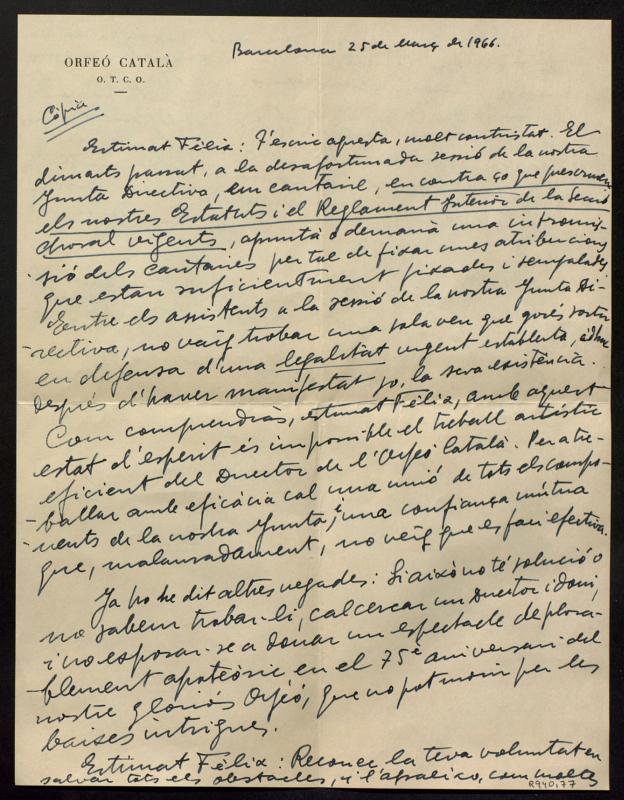 Barcelona 25 de Març de 1966.
ORFEÓ CATALÀ
O. T. C. O.
Còpia
Estimat Fèlix: T'escric aquesta, molt contristat. El
dimarts passat, a la desafortunada sessió de la nostra
Junta Directiva, un cantaire, en contra ço que prescriuen
els nostres Estatuts i el Reglament Interior de la Secció
choral vigents, apuntà o demanà una intromis-
sió dels cantaires per tal de fixar unes atribucions
que estan suficientment fixades i senyalades
Entre els assistents a la sessió de la nostra Junta Di-
rectiva, no vaig trobar una sola veu que gosés sortir
en defensa d'una legalitat vigent establerta, àdhuc
després d'haver manifestat jo, la seva existència.
Com compendràs, estimat Fèlix, amb aquest
estat d'esperit és impossible el treball artístic
eficient del Director de l'Orfeó Català. Per a tre-
ballar amb eficàcia cal una unió de tots els compo-
nents de la nostra Junta, i una confiança mútua
que, malauradament, no veig que es faci efectiva.
Ja ho he dit altres vegades: Si això no té solució o
no sabem trobar-li, cal cercar un Director idoni,
i no esposar-se a donar un espectacle deplora-
blement apoteòsic en el 75è aniversari del
nostre gloriós Orfeó, que no pot morir per les
baixes intrigues.
Estimat Fèlix: Reconec la teva voluntat en
salvar tots els obstacles, i t'agraeixo, com moltes
R940,77